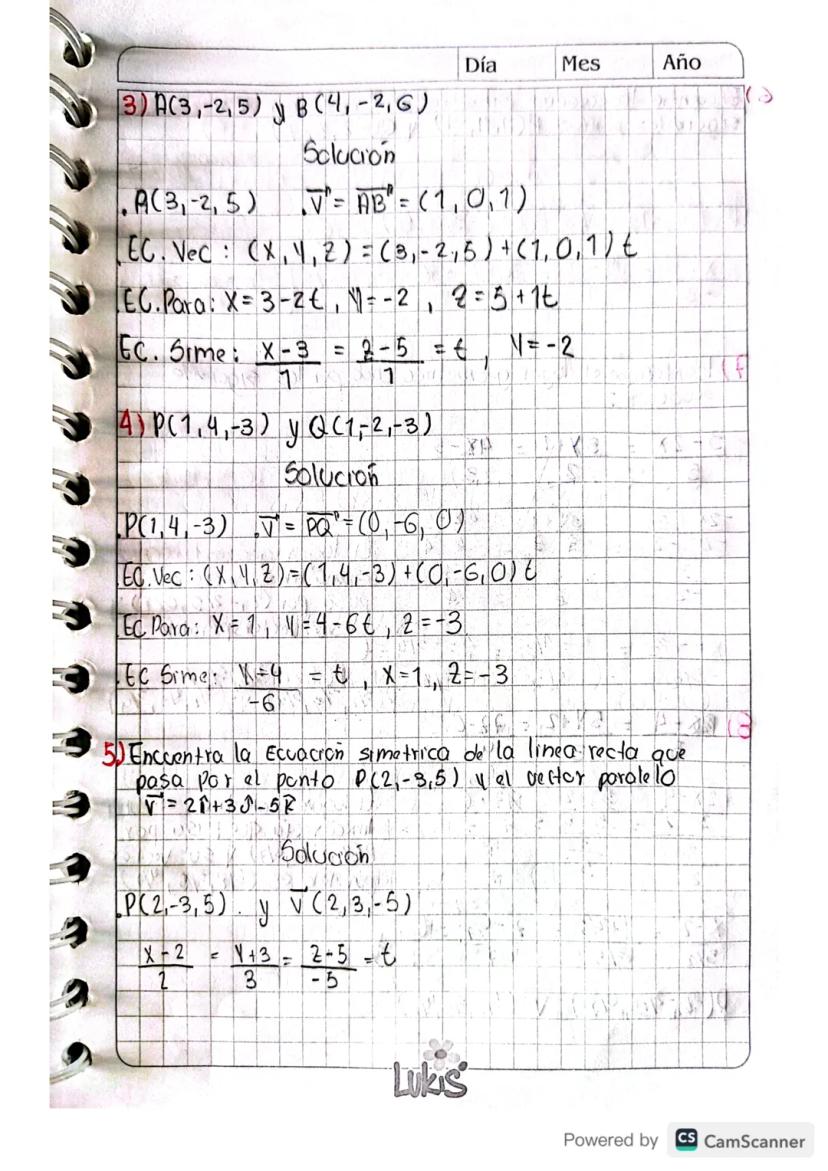 Día Mes Año
3) A(3,-2,5) y B(4,-2,6)
Solución
.A(3,-2,5) .V⃗ = AB⃗ = (1,0,1)
.EC. Vec: (X,Y,Z)=(3,-2,5)+(1,0,1)t
.EC.Para: X=3-2t, Y=-2, Z=5+1t
EC. Sime: X-3/1 = Z-5/1 = t, Y=-2
4) P(1,4,-3) y Q(1,-2,-3)
Solución
.P(1,4,-3) .V⃗ = PQ⃗ = (0,-6,0)
.EC.Vec: (X,Y,Z)=(1,4,-3)+(0,-6,0)t
.EC Para: X=1, Y=4-6t, Z=-3
.EC Sime: Y-4/-6 = t, X=1, Z=-3
5) Encuentra la Ecuación simetrica de la linea recta que
pasa por el punto P(2,-3,5) y el vector paralelo
V⃗ = 2î+3ĵ-5k̂
Solución
.P(2,-3,5). y V⃗(2,3,-5)
X-2/2 = Y+3/3 = Z-5/-5 = t
Lukis
Powered by CS CamScanner